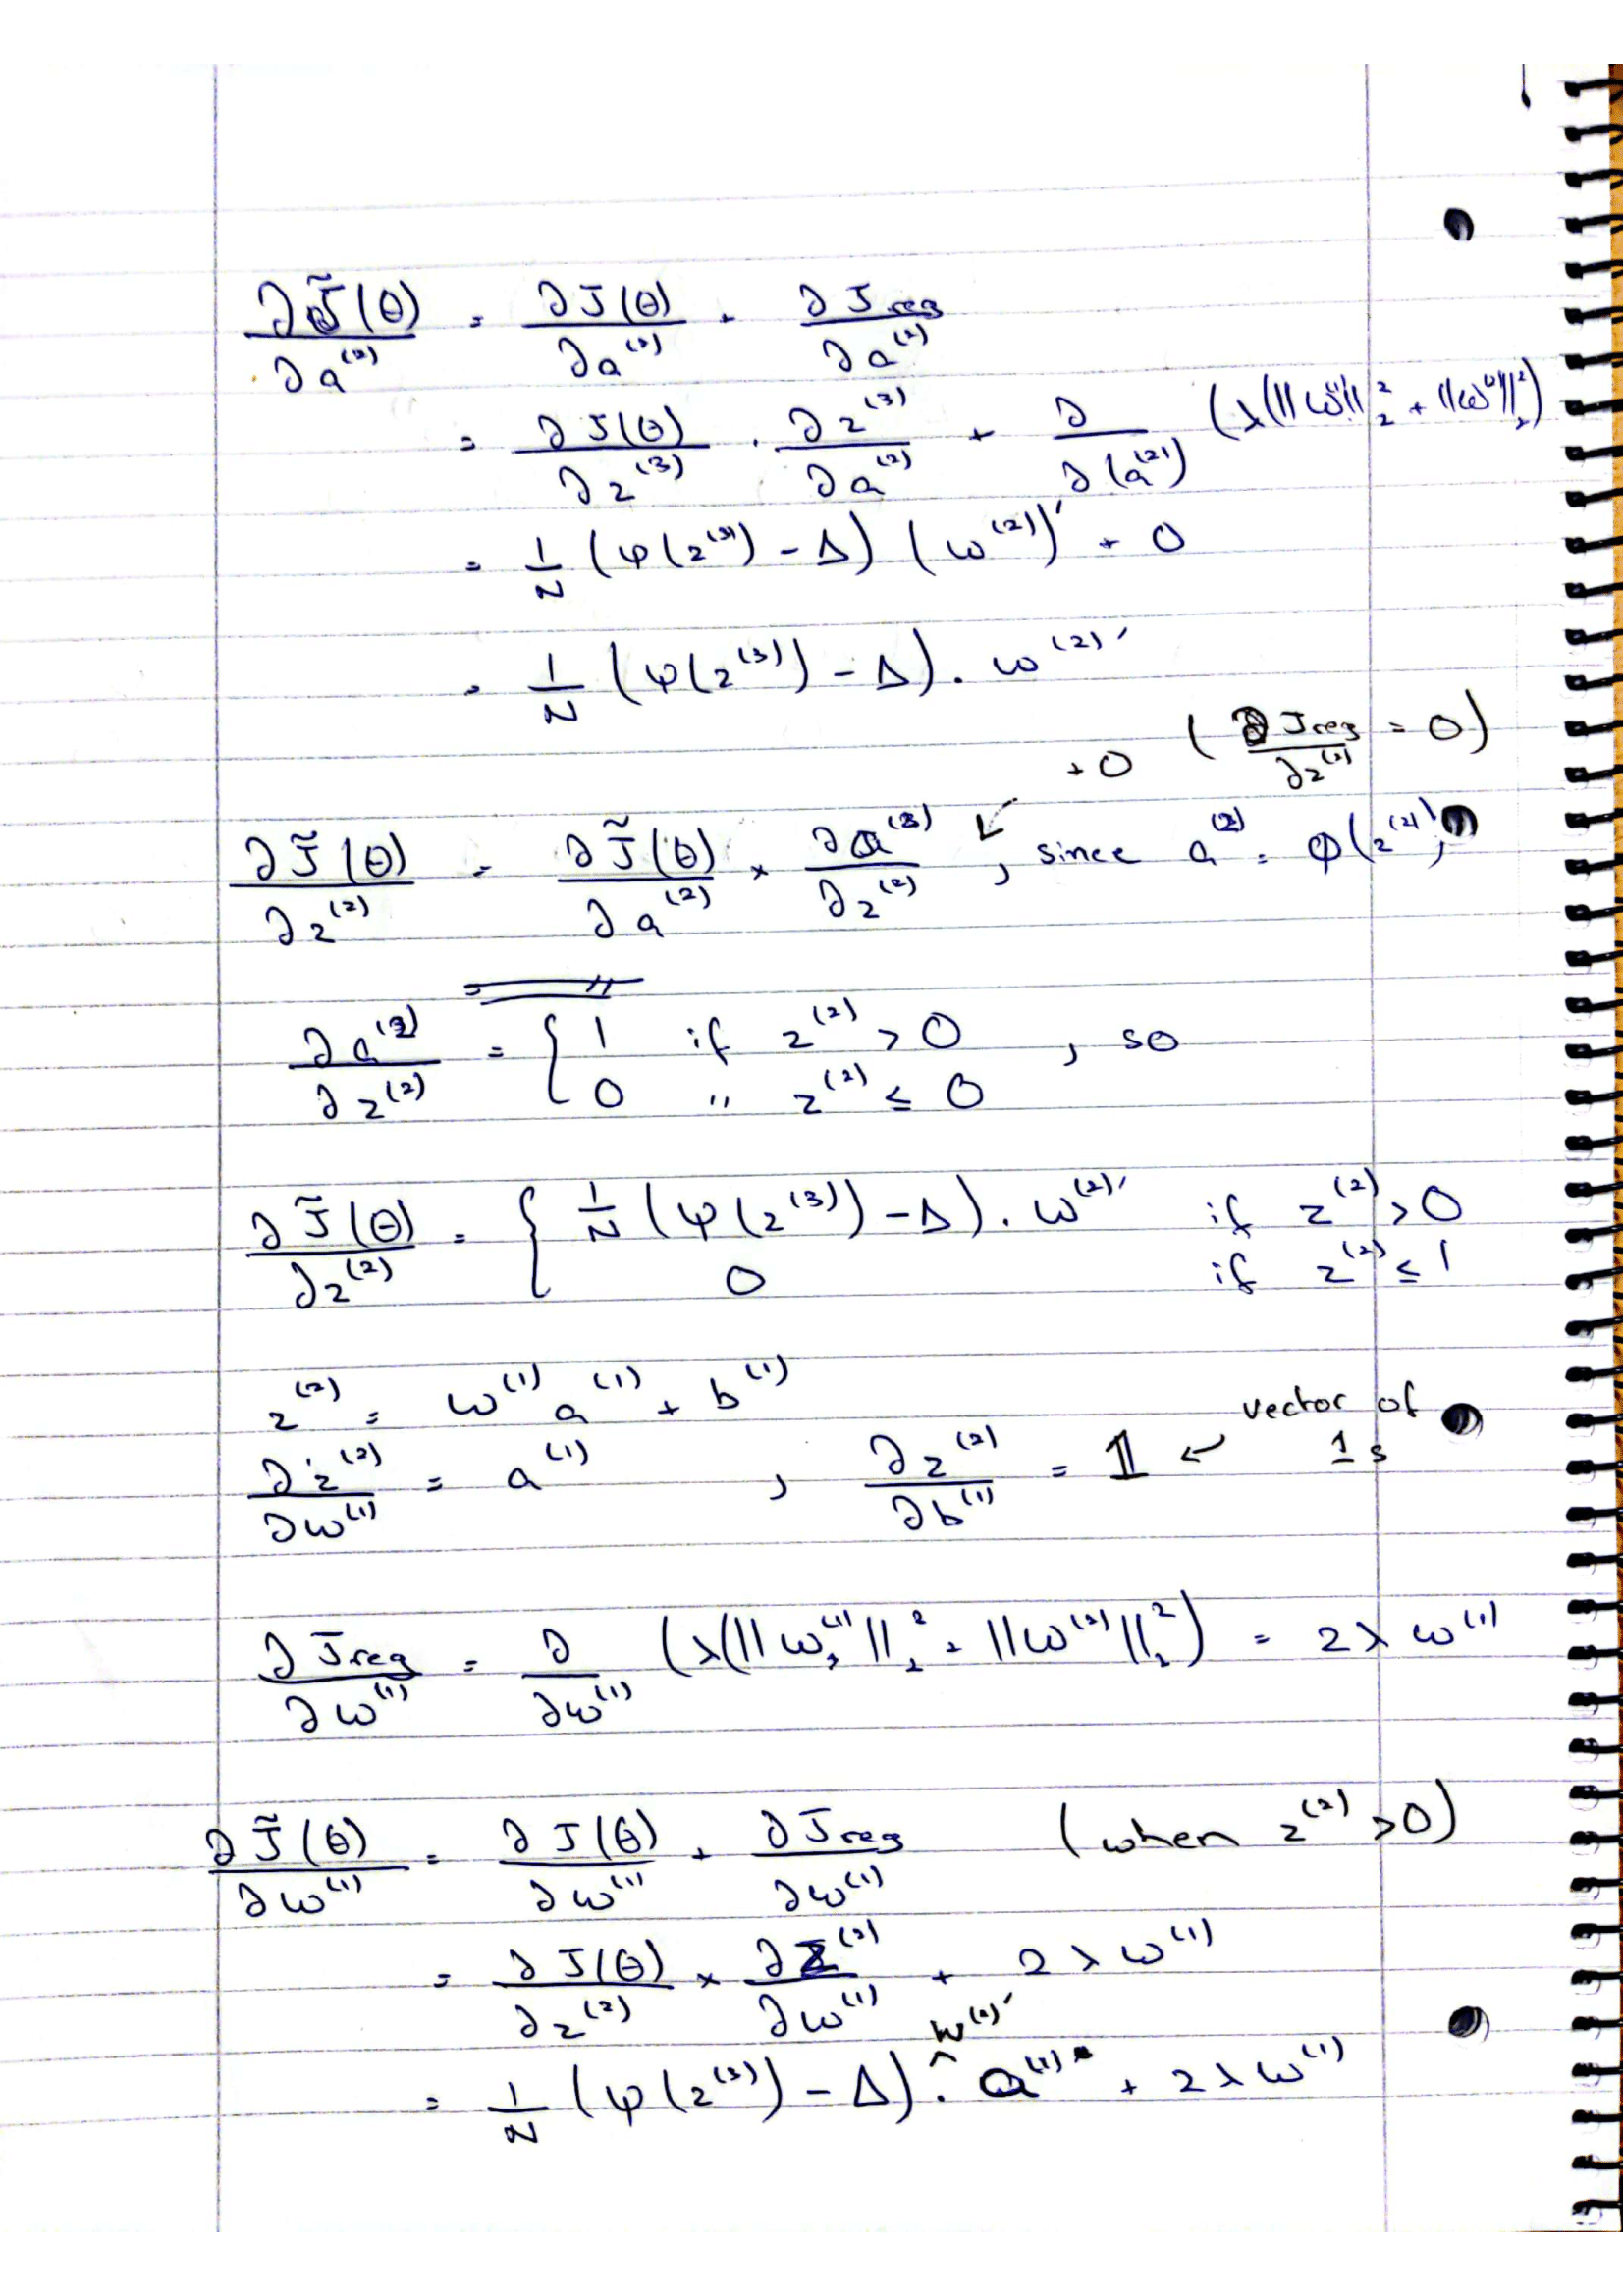 ∂J̃(θ)/∂a⁽²⁾ = ∂J(θ)/∂a⁽²⁾ + ∂J reg/∂a⁽²⁾
= ∂J(θ)/∂z⁽³⁾ . ∂z⁽³⁾/∂a⁽²⁾ + ∂/∂(a⁽²⁾) (λ(||ω⁽¹⁾||₂² + ||ω⁽²⁾||₂²)
= 1/N (ψ(z⁽³⁾) - Δ) (ω⁽²⁾)' + 0
= 1/N (ψ(z⁽³⁾) - Δ) . ω⁽²⁾'
+ 0 (∂J reg/∂z⁽²⁾ = 0)
∂J̃(θ)/∂z⁽²⁾ = ∂J̃(θ)/∂a⁽²⁾ × ∂a⁽²⁾/∂z⁽²⁾ , since a⁽²⁾ = φ(z⁽²⁾),
∂a⁽²⁾/∂z⁽²⁾ = { 1 if z⁽²⁾ > 0 , so
0 " z⁽²⁾ ≤ 0
∂J̃(θ)/∂z⁽²⁾ = { 1/N (ψ(z⁽³⁾) - Δ) . ω⁽²⁾' if z⁽²⁾ > 0
0 if z⁽²⁾ ≤ 1
z⁽²⁾ = ω⁽¹⁾ a⁽¹⁾ + b⁽¹⁾
∂z⁽²⁾/∂ω⁽¹⁾ = a⁽¹⁾ , ∂z⁽²⁾/∂b⁽¹⁾ = 𝟙 ← vector of 1s
∂J reg/∂ω⁽¹⁾ = ∂/∂ω⁽¹⁾ (λ(||ω⁽¹⁾||₂² + ||ω⁽²⁾||₂²) = 2λω⁽¹⁾
∂J̃(θ)/∂ω⁽¹⁾ = ∂J(θ)/∂ω⁽¹⁾ + ∂J reg/∂ω⁽¹⁾ (when z⁽²⁾ > 0)
= ∂J(θ)/∂z⁽²⁾ × ∂z⁽²⁾/∂ω⁽¹⁾ + 2λω⁽¹⁾
= 1/N (ψ(z⁽³⁾) - Δ) . w⁽²⁾' a⁽¹⁾ + 2λω⁽¹⁾